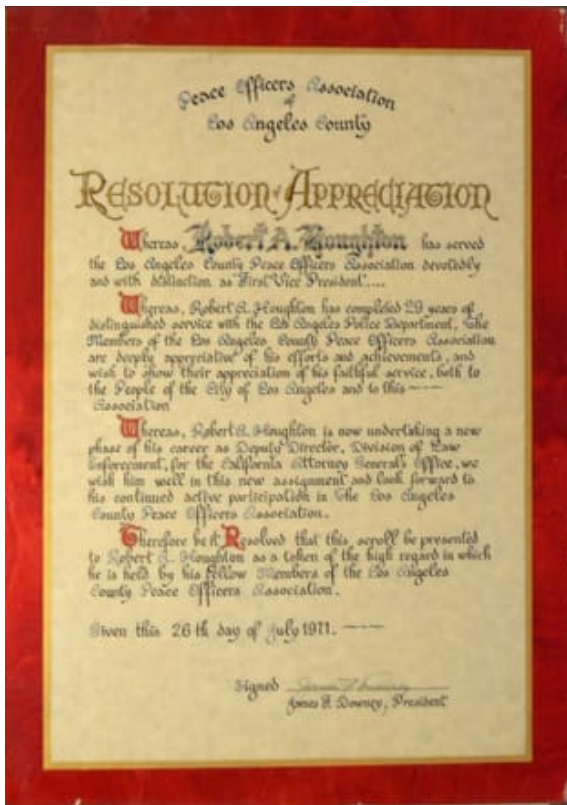 Peace Officers Association
of
Los Angeles County
RESOLUTION of APPRECIATION
Whereas, Robert A. Houghton has served
the Los Angeles County Peace Officers Association devotedly
and with distinction as First Vice President....
Whereas, Robert A. Houghton has completed 29 years of
distinguished service with the Los Angeles Police Department, The
Members of the Los Angeles County Peace Officers Association
are deeply appreciative of his efforts and achievements, and
wish to show their appreciation of his faithful service, both to
the People of the City of Los Angeles and to this ----
Association
Whereas, Robert A. Houghton is now undertaking a new
phase of his career as Deputy Director, Division of Law
Enforcement, for the California Attorney General's Office, we
wish him well in this new assignment and look forward to
his continued active participation in The Los Angeles
County Peace Officers Association.
Therefore be it Resolved that this scroll be presented
to Robert A. Houghton as a token of the high regard in which
he is held by his Fellow Members of the Los Angeles
County Peace Officers Association.
Given this 26th day of July 1971. ----
Signed
James F. Downey, President